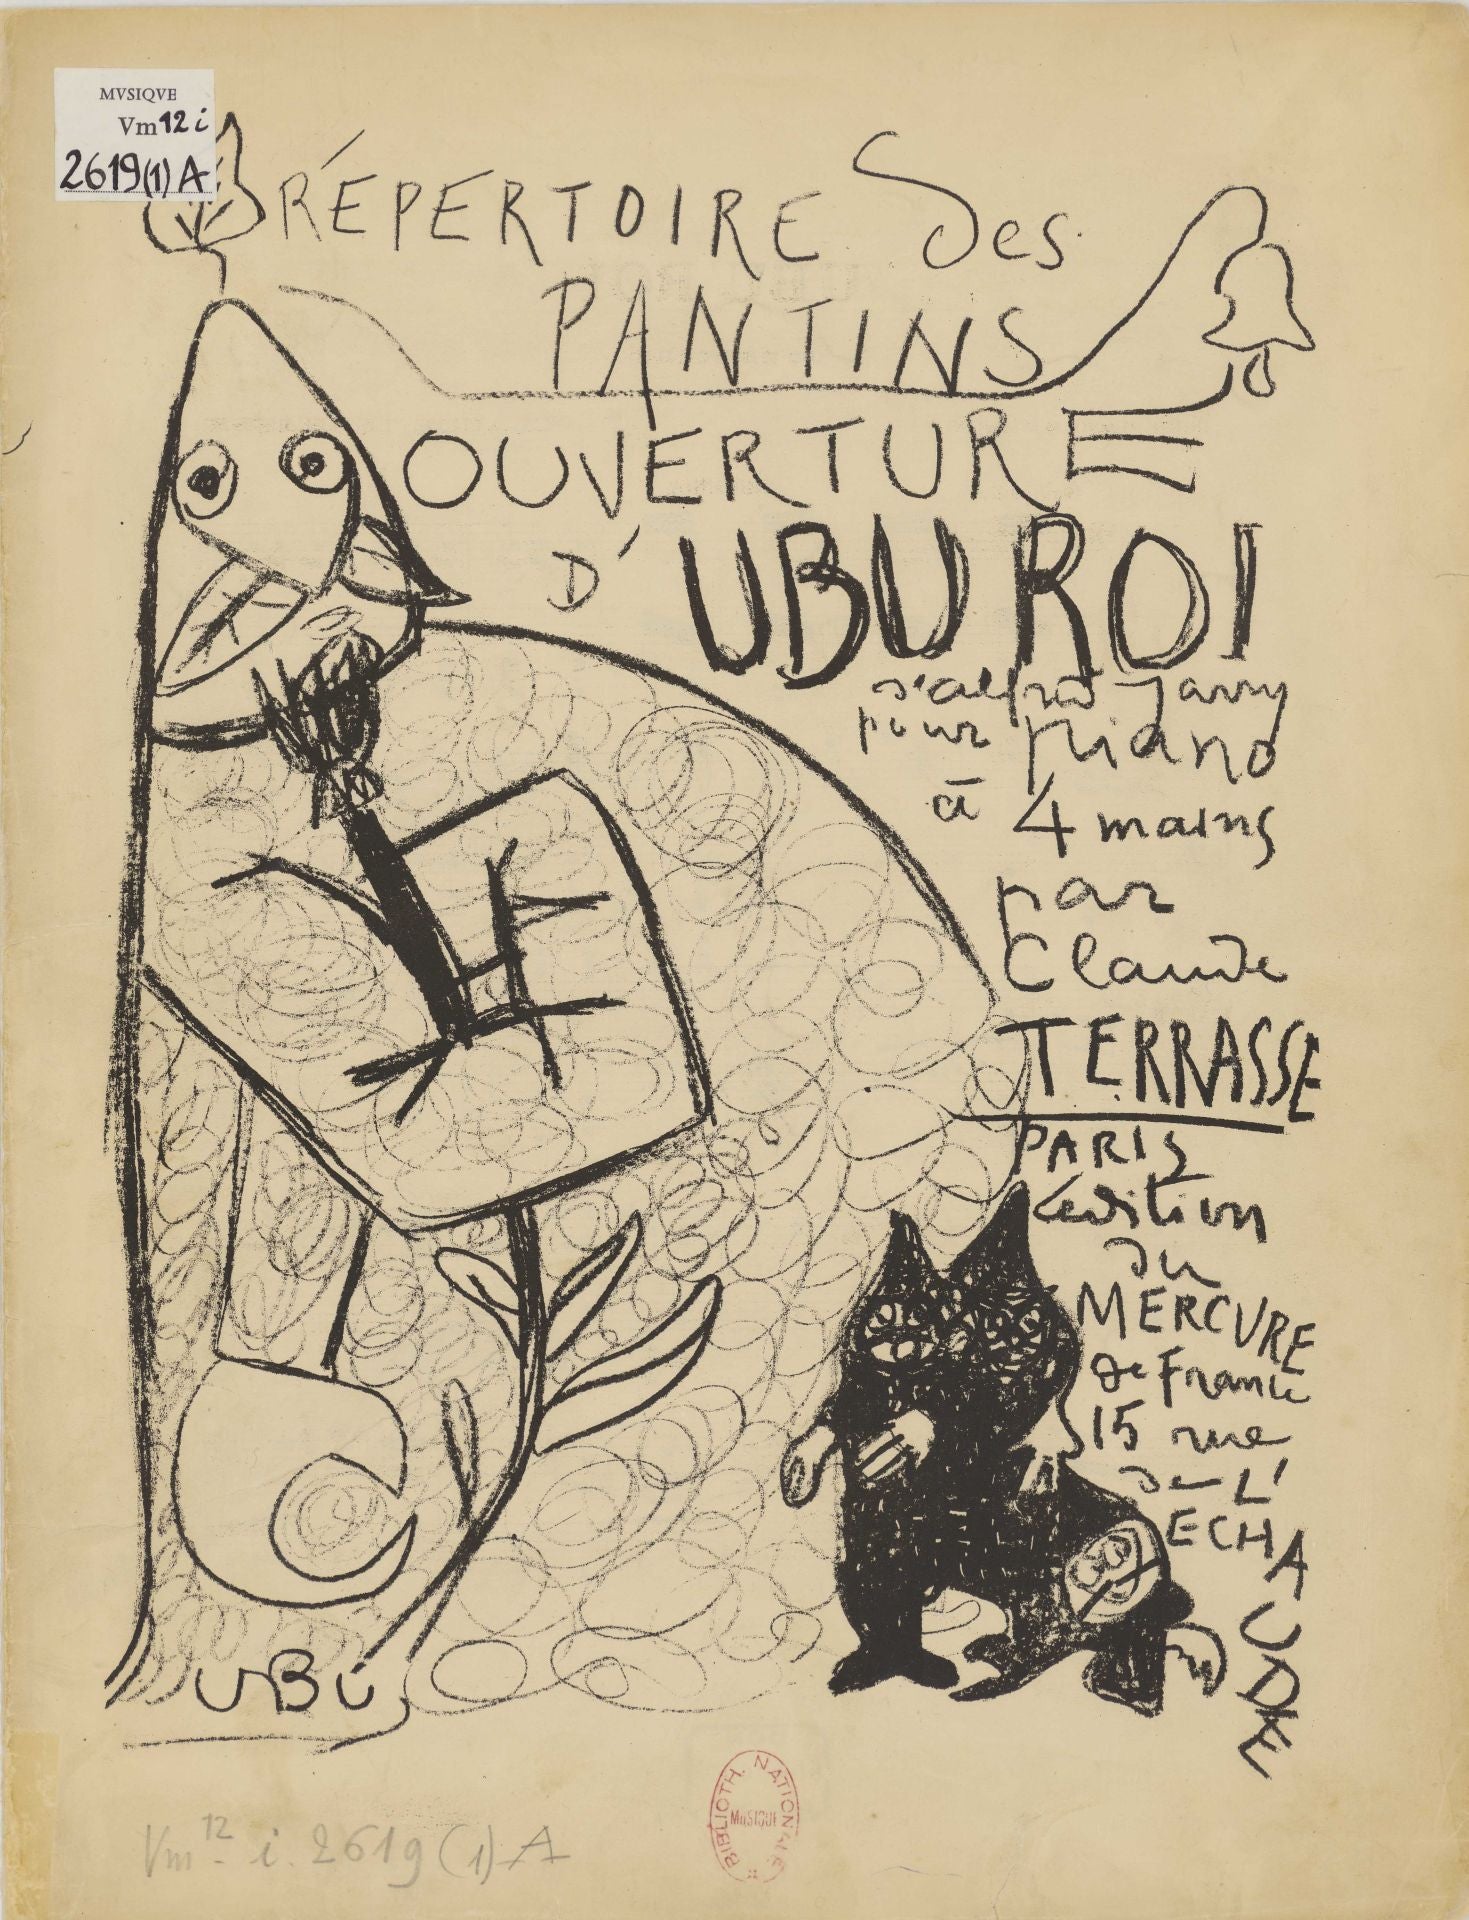 MVSIQVE
Vm 12 i
2619(1)A
RÉPERTOIRE des
PANTINS
OUVERTURE
D'UBU ROI
d'alfred Jarry
pour piano
à 4 mains
par
Claude
TERRASSE
PARIS
édition
du
MERCVRE
de France
15 rue
de L'
ECHAUDE
UBU
BIBLIOTH. NATIONALE
MUSIQUE
Vm 12 i. 2619 (1) A